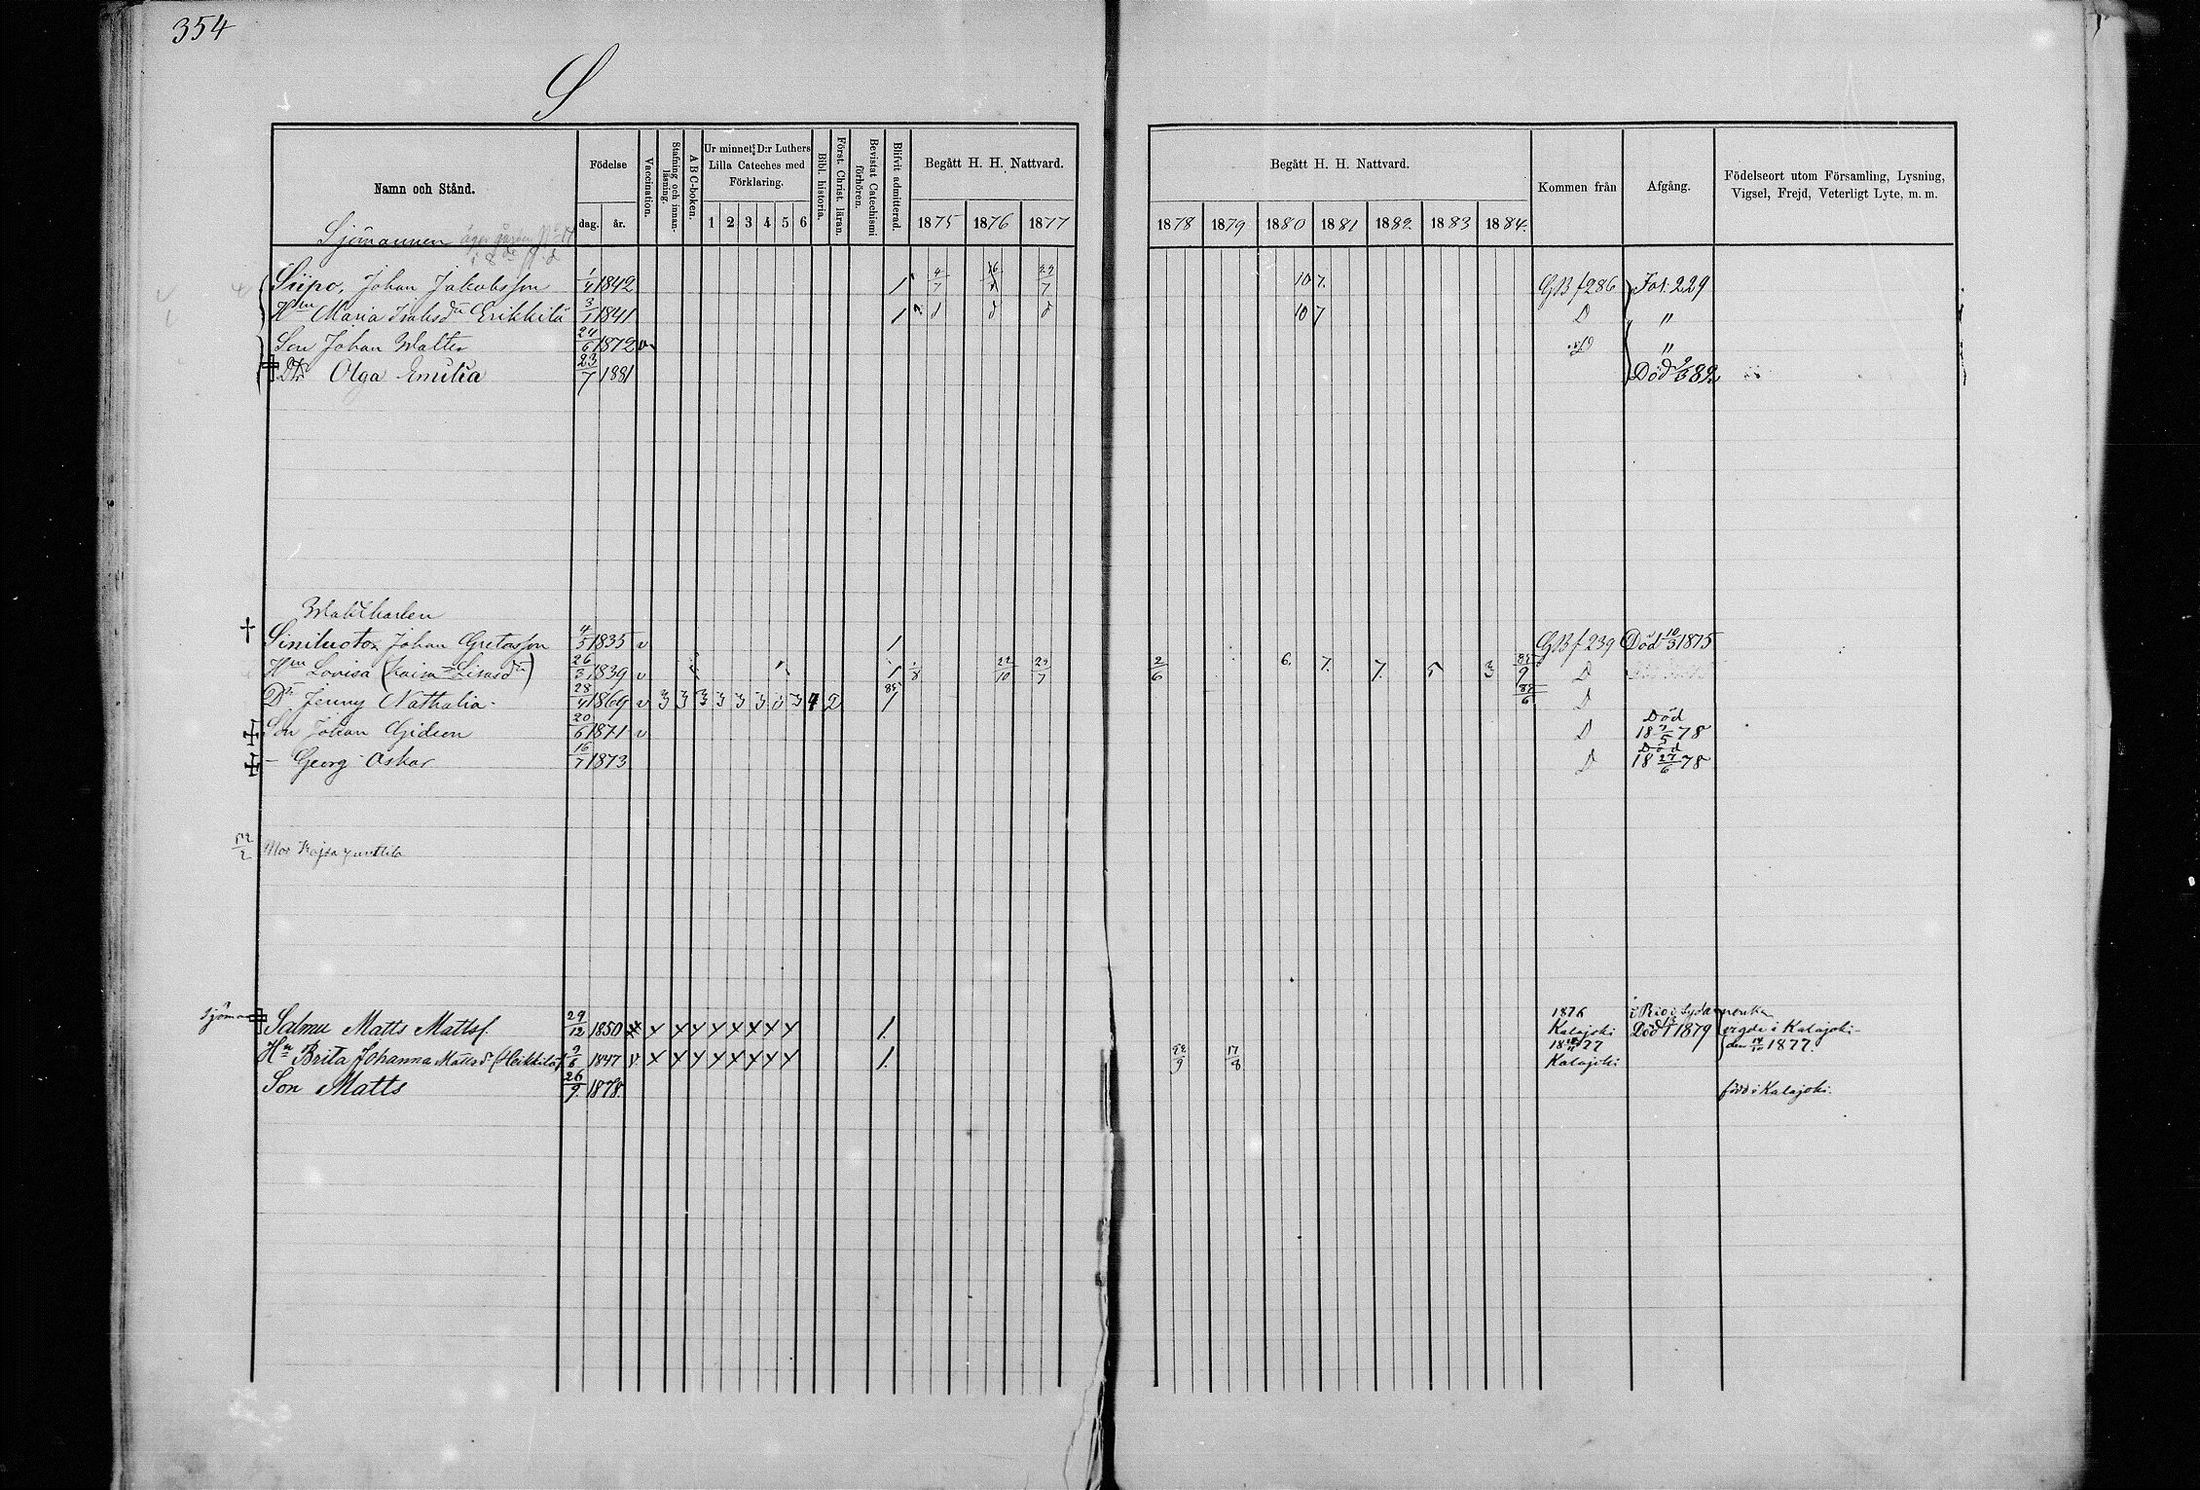 354
S
Namn och Stånd.
Födelse
dag. år.
Vaccination.
Stafning och innanläsning.
ABC-boken.
Ur minnet: D:r Luthers Lilla Cateches med Förklaring.
1 2 3 4 5 6
Bibl. historia.
Först. Christ. läran.
Bevistat Catechismi förhören.
Blifvit admitterad.
Begått H. H. Nattvard.
1875 1876 1877
Begått H. H. Nattvard.
1878 1879 1880 1881 1882 1883 1884
Kommen från
Afgång.
Födelseort utom Församling, Lysning, Vigsel, Frejd, Veterligt Lyte, m. m.
Sjömannen
Siipo, Johan Jakobsson 1/4 1842 1 10 7. GB f 286 Fol. 229
Hm Maria Erikkilä 3/1 1841 1 10 7 D "
Son Johan Walter 24/6 1872 v "
Dtr Olga Emilia 23/7 1881 Död
Siniluoto Johan Gretasson 4/5 1835 v 1 GB f 239 Död 10/3 1875
Hm Lovisa 26/3 1839 v 1 22/10 29/7 2/6 6. 7. 7. 5 3 D
Dr Jenny Nathalia 28/4 1869 v 3 3 3 3 3 3 3 4 2 85 1 D
Son Johan Gideon 20/6 1871 v D Död 18 /5 78
- Georg Oskar 16/7 1873 D Död 18 27/6 78
Mor Kajsa
sjöman Salmu Matts Mattss. 29/12 1850 x x x x x x x x x 1. 1876 Kalajoki i Rio i Sydamerika Död 1879 vigde i Kalajoki den 1877.
Hn Brita Johanna Mattsdr (Heikkilä) 1847 x x x x x x x x 1. 17/8 1877 Kalajoki
Son Matts 26/9 1878. född i Kalajoki.